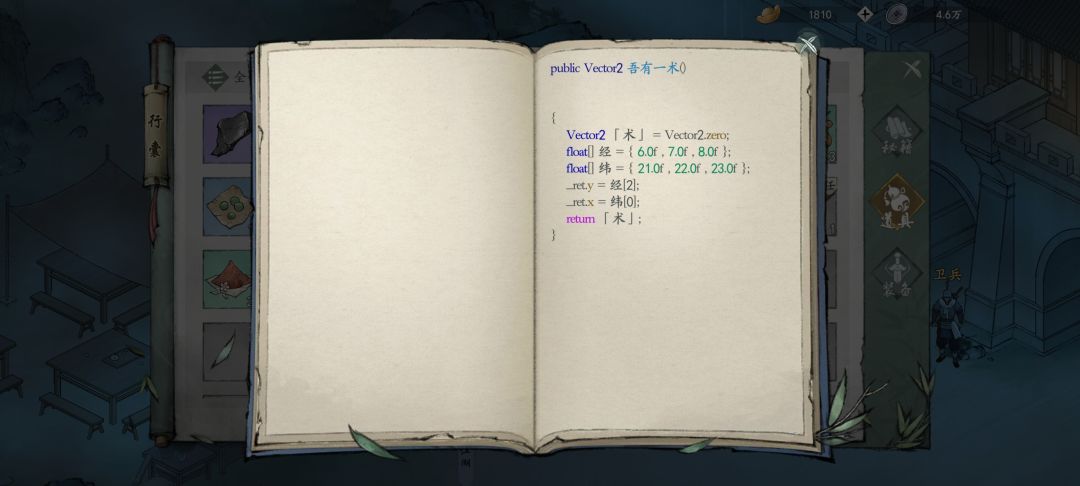 1810
4.6万
行囊
全
public Vector2 吾有一术()
{
Vector2 「术」 = Vector2.zero;
float[] 经 = { 6.0f , 7.0f , 8.0f };
float[] 纬 = { 21.0f , 22.0f , 23.0f };
_ret.y = 经[2];
_ret.x = 纬[0];
return 「术」;
}
秘籍
道具
装备
卫兵